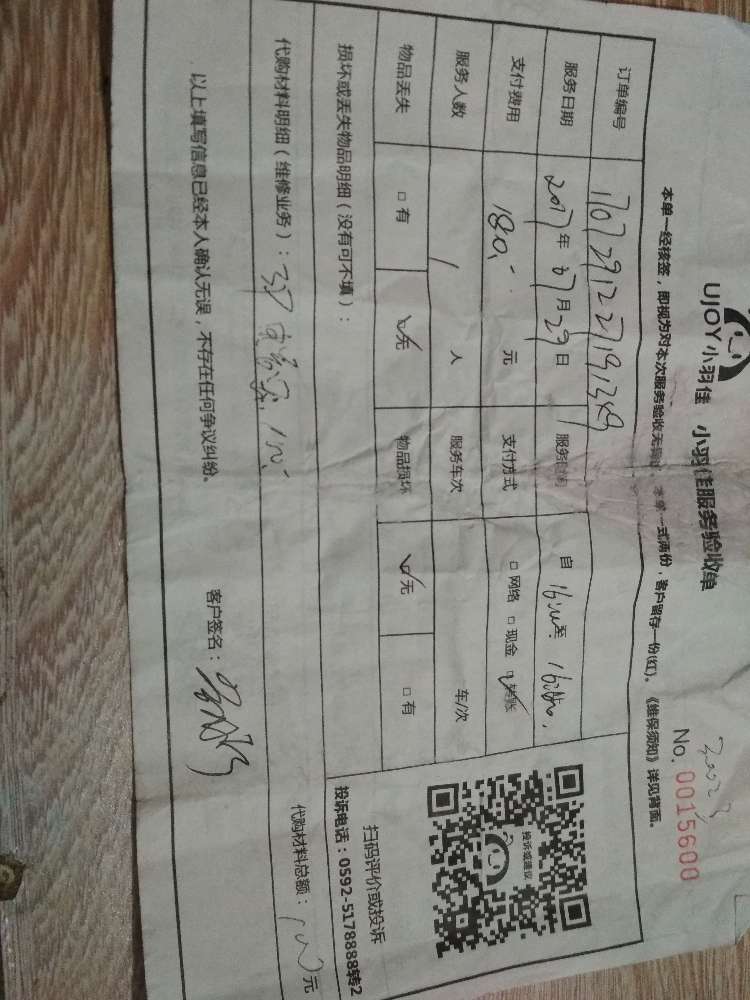 UJOY小羽佳 小羽佳服务验收单
No. 0015600
本单一经核签，即视为对本次服务验收无异议，本单一式两份，客户留存一份(红)。《维保须知》详见背面。
订单编号
服务日期 2017年 07月 29日 服务时间 自 至
支付费用 180 元 支付方式 □网络 □现金 ☑转账
服务人数 1 人 服务车次 车/次
物品丢失 □有 ☑无 物品损坏 ☑无 □有
损坏或丢失物品明细（没有可不填）：
投诉或建议
扫码评价或投诉
投诉电话：0592-5178888转2
代购材料明细（维修业务）：
代购材料总额： 元
以上填写信息已经本人确认无误，不存在任何争议纠纷。 客户签名：